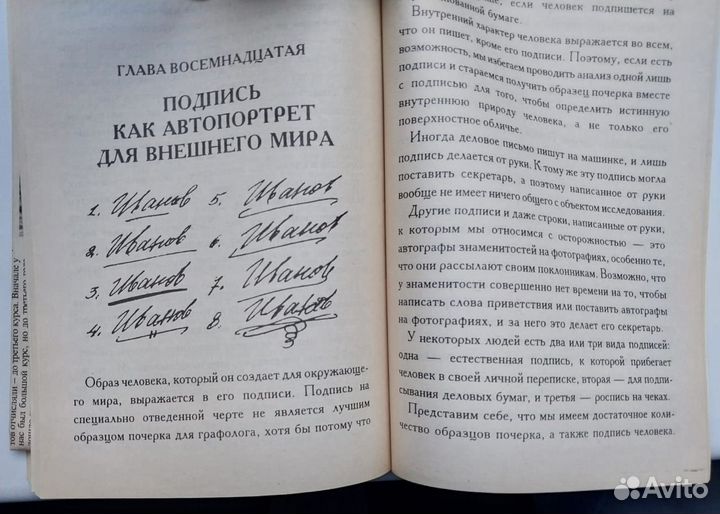 ГЛАВА ВОСЕМНАДЦАТАЯ
ПОДПИСЬ
КАК АВТОПОРТРЕТ
ДЛЯ ВНЕШНЕГО МИРА
1. Иванов 5. Иванов
2. Иванов 6. Иванов
3. Иванов 7. Иванов
4. Иванов 8. Иванов
Образ человека, который он создает для окружающе-
го мира, выражается в его подписи. Подпись на
специально отведенной черте не является лучшим
образцом почерка для графолога, хотя бы потому что
если человек подпишется на
бумаге.
Внутренний характер человека выражается во всем,
что он пишет, кроме его подписи. Поэтому, если есть
возможность, мы избегаем проводить анализ одной лишь
подписи и стараемся получить образец почерка вместе
с подписью для того, чтобы определить истинную
внутреннюю природу человека, а не только его
поверхностное обличье.
Иногда деловое письмо пишут на машинке, и лишь
подпись делается от руки. К тому же эту подпись могла
поставить секретарь, а поэтому написанное от руки
вообще не имеет ничего общего с объектом исследования.
Другие подписи и даже строки, написанные от руки,
к которым мы относимся с осторожностью — это
автографы знаменитостей на фотографиях, особенно те,
что они рассылают своим поклонникам. Возможно, что
у знаменитости совершенно нет времени на то, чтобы
написать слова приветствия или поставить автографы
на фотографиях, и за него это делает его секретарь.
У некоторых людей есть два или три вида подписей:
одна — естественная подпись, к которой прибегает
человек в своей личной переписке, вторая — для подпи-
сывания деловых бумаг, и третья — роспись на чеках.
Представим себе, что мы имеем достаточное коли-
чество образцов почерка, а также подпись человека.
тов отчислали – до третьего курса. Вначале у
нас был большой курс, но до третьего
Avito